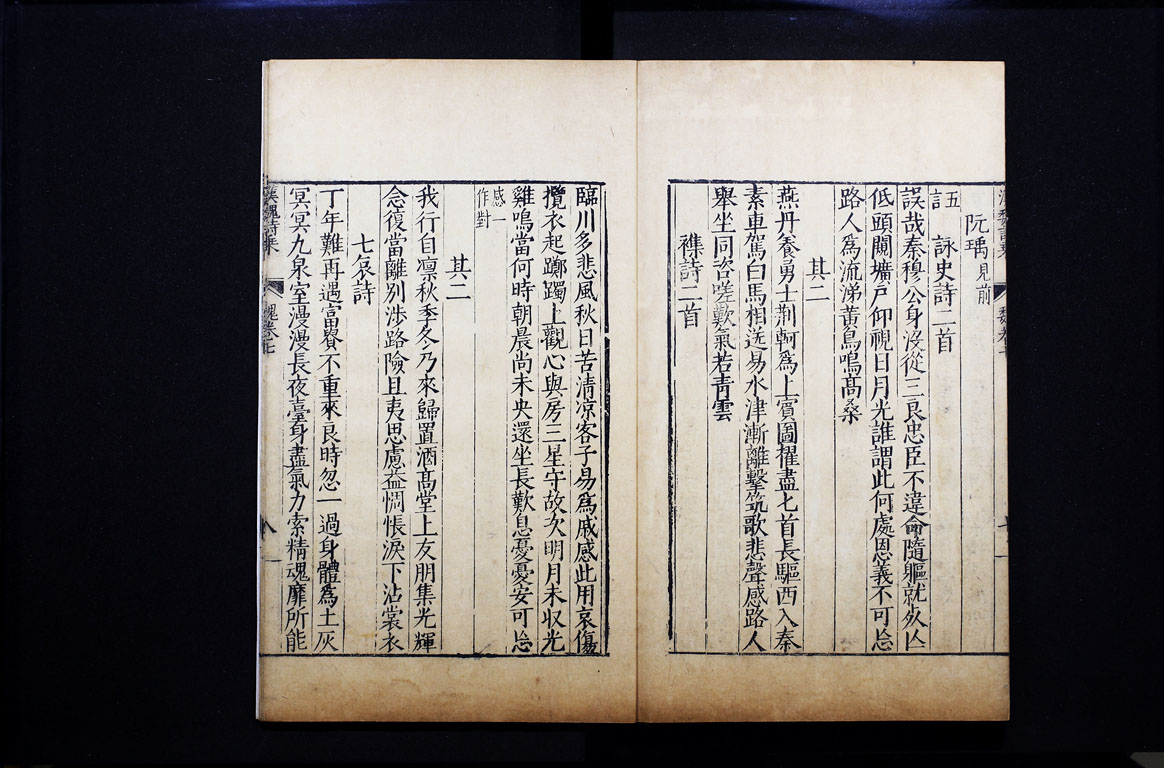 阮瑀見前
五言 詠史詩二首
誤哉秦穆公身沒從三良忠臣不違命隨軀就死亡
低頭闚壙戶仰視日月光誰謂此何處恩義不可忘
路人爲流涕黃鳥鳴高桑
其二
燕丹養勇士荆軻爲上賓圖擢盡匕首長驅西入秦
素車駕白馬相送易水津漸離擊筑歌悲聲感路人
舉坐同咨嗟歎氣若青雲
襍詩二首
臨川多悲風秋日苦清凉客子易爲戚感此用哀傷
攬衣起躑躅上觀心與房三星守故次明月未収光
雞鳴當何時朝晨尚未央還坐長歎息憂憂安可忘
感一
作對
其二
我行自凛秋季冬乃來歸置酒高堂上友朋集光輝
念復當離別涉路險且夷思慮益惆悵淚下沾裳衣
七哀詩
丁年難再遇富貴不重來良時忽一過身體爲土灰
冥冥九泉室漫漫長夜臺身盡氣力索精魂靡所能
漢魏詩集 魏卷七 八